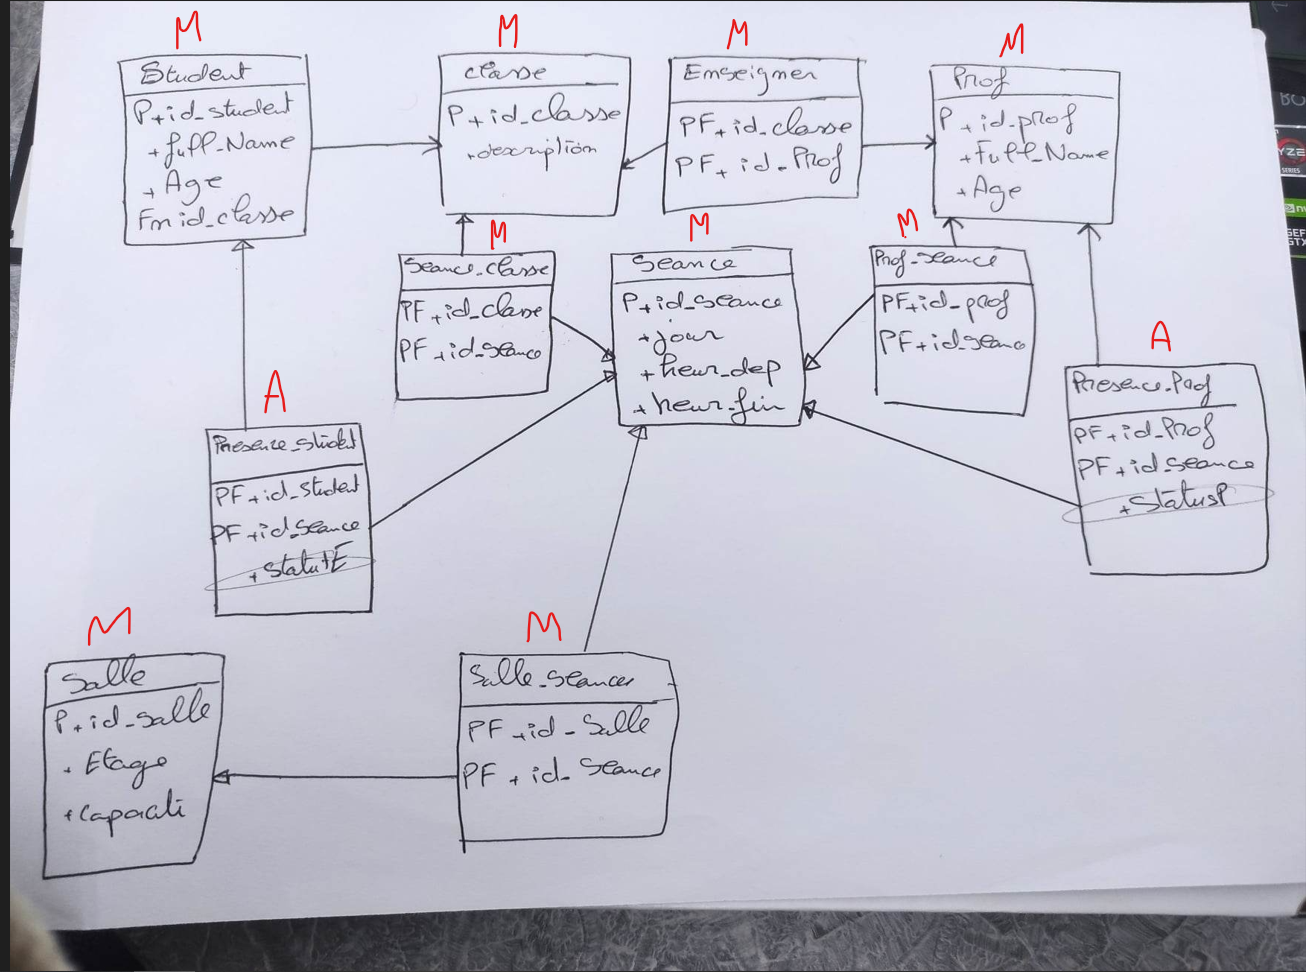 M
Student
P+id_student
+full_Name
+Age
F+id_classe
M
classe
P+id_classe
+description
M
Enseigner
PF+id_classe
PF+id_Prof
M
Prof
P+id_prof
+Full_Name
+Age
M
Seance_classe
PF+id_classe
PF+id_seance
M
Seance
P+id_seance
+jour
+heur_dep
+heur_fin
M
Prof_seance
PF+id_prof
PF+id_seance
A
Presence_Prof
PF+id_Prof
PF+id_seance
+StatusP
A
Presence_student
PF+id_student
PF+id_seance
+StatutE
M
Salle
P+id_salle
+Etage
+Capaciti
M
Salle_seances
PF+id_Salle
PF+id_Seance
YZE
SERIES
GTX